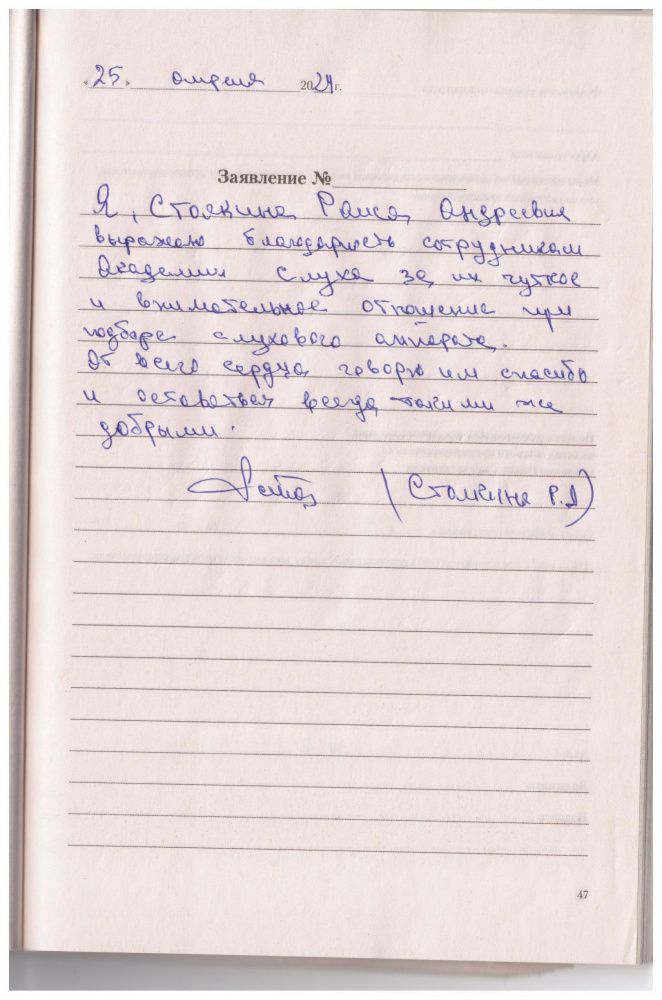 «25» апреля 2024г.
Заявление №
Я, Стоякина Раиса Андреевна
выражаю благодарность сотрудникам
Академии слуха за их чуткое
и внимательное отношение при
подборе слухового аппарата.
От всего сердца говорю им спасибо
и оставаться всегда такими же
добрыми.
(Стоякина Р.А)
47